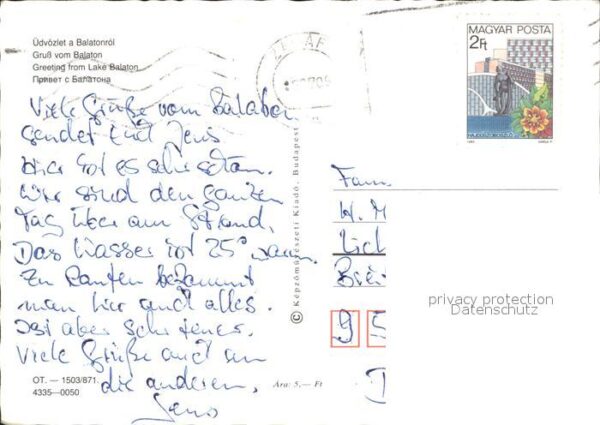 Üdvözlet a Balatonról
Gruß vom Balaton
Greeting from Lake Balaton
Привет с Балатона
Viele Grüße vom Balaton
sendet Euch Jens
Hier ist es sehr schön.
Wir sind den ganzen
Tag über am Strand,
Das Wasser ist 25° warm.
Zu kaufen bekommt
man hier auch alles.
Ist aber sehr teuer.
Viele Grüße auch an
die anderen,
Jens
OT. — 1503/871.
4335—0050
Ára: 5,— Ft
© Képzőművészeti Kiadó, Budapest
MAGYAR POSTA
2Ft
Fam
H. M
95
privacy protection
Datenschutz